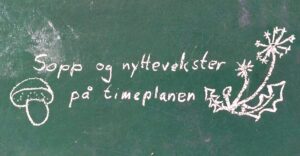 Sopp og nyttevekster
på timeplanen